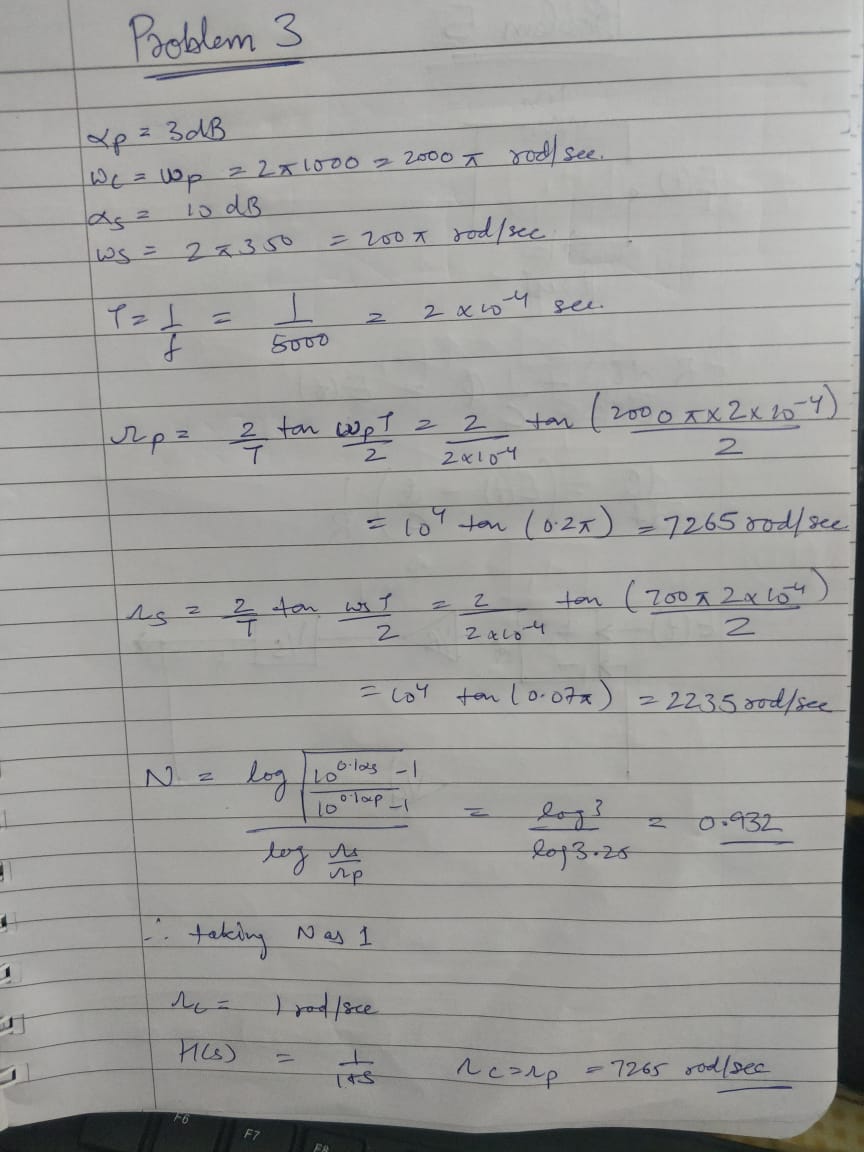 Problem 3
αp = 3dB
ωc = ωp = 2π1000 = 2000π rod/sec.
αs = 10 dB
ωs = 2π350 = 200π rod/sec
T = 1/f = 1/5000 = 2 × 10^-4 sec.
Ωp = 2/T tan ωpT/2 = 2/2×10^-4 tan (2000π×2×10^-4)/2
= 10^4 tan (0.2π) = 7265 rod/sec
Ωs = 2/T tan ωsT/2 = 2/2×10^-4 tan (700π2×10^-4)/2
= 10^4 tan (0.07π) = 2235 rod/sec
N = log √(10^0.1αs -1 / 10^0.1αp -1) / log Ωs/Ωp = log 3 / log 3.25 = 0.932
∴ taking N as 1
Ωc = 1 rad/sec
H(s) = 1/1+s Ωc = Ωp = 7265 rod/sec
F6
F7
F8